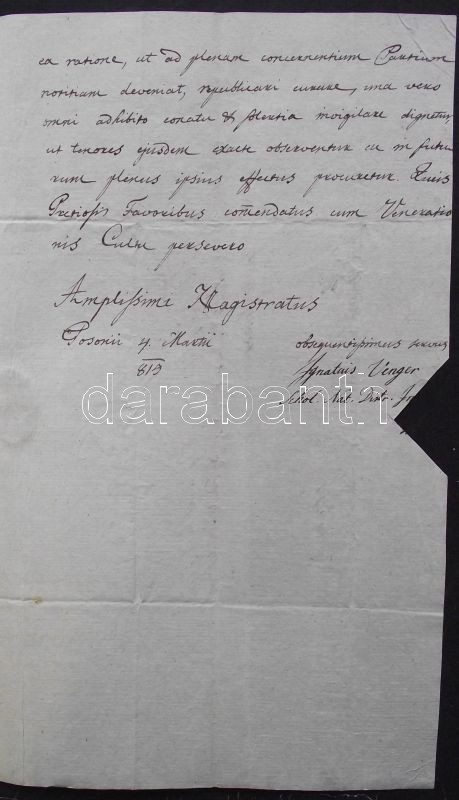 ea ratione, ut ad plenam concernentium Partium
notitiam deveniat, republicari curare, una vero
omni adhibito conatu & solertia invigilare dignetur
ut tenores ejusdem exacte observentur ac in futu
rum plenus ipsius effectus procuretur. Queis
Pretiosis Favoribus com̄endatus cum Veneratio
nis Cultu persevero
Amplissimi Magistratus
Posonii 4 Martii
813
obsequentissimus servus
Ignatius Venger
Schol. Nat. Distr.
darabanth